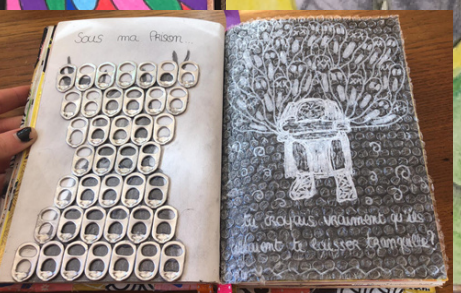 Sous ma Prison...
tu croyais vraiment qu'ils
allaient te laisser tranquille?